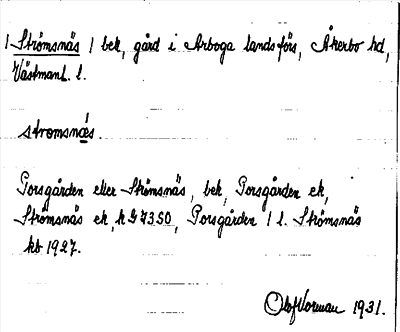 1 Strömsnäs / bek, gård i Arboga landsförs, Åkerbo hd,
Västmanl. l.
stromsnäs.
Porsgården eller Strömsnäs, bek, Porsgården ek,
Strömsnäs ek, kG 7350, Porsgården l l. Strömsnäs
kb 1927.
Olof Norman 1931.